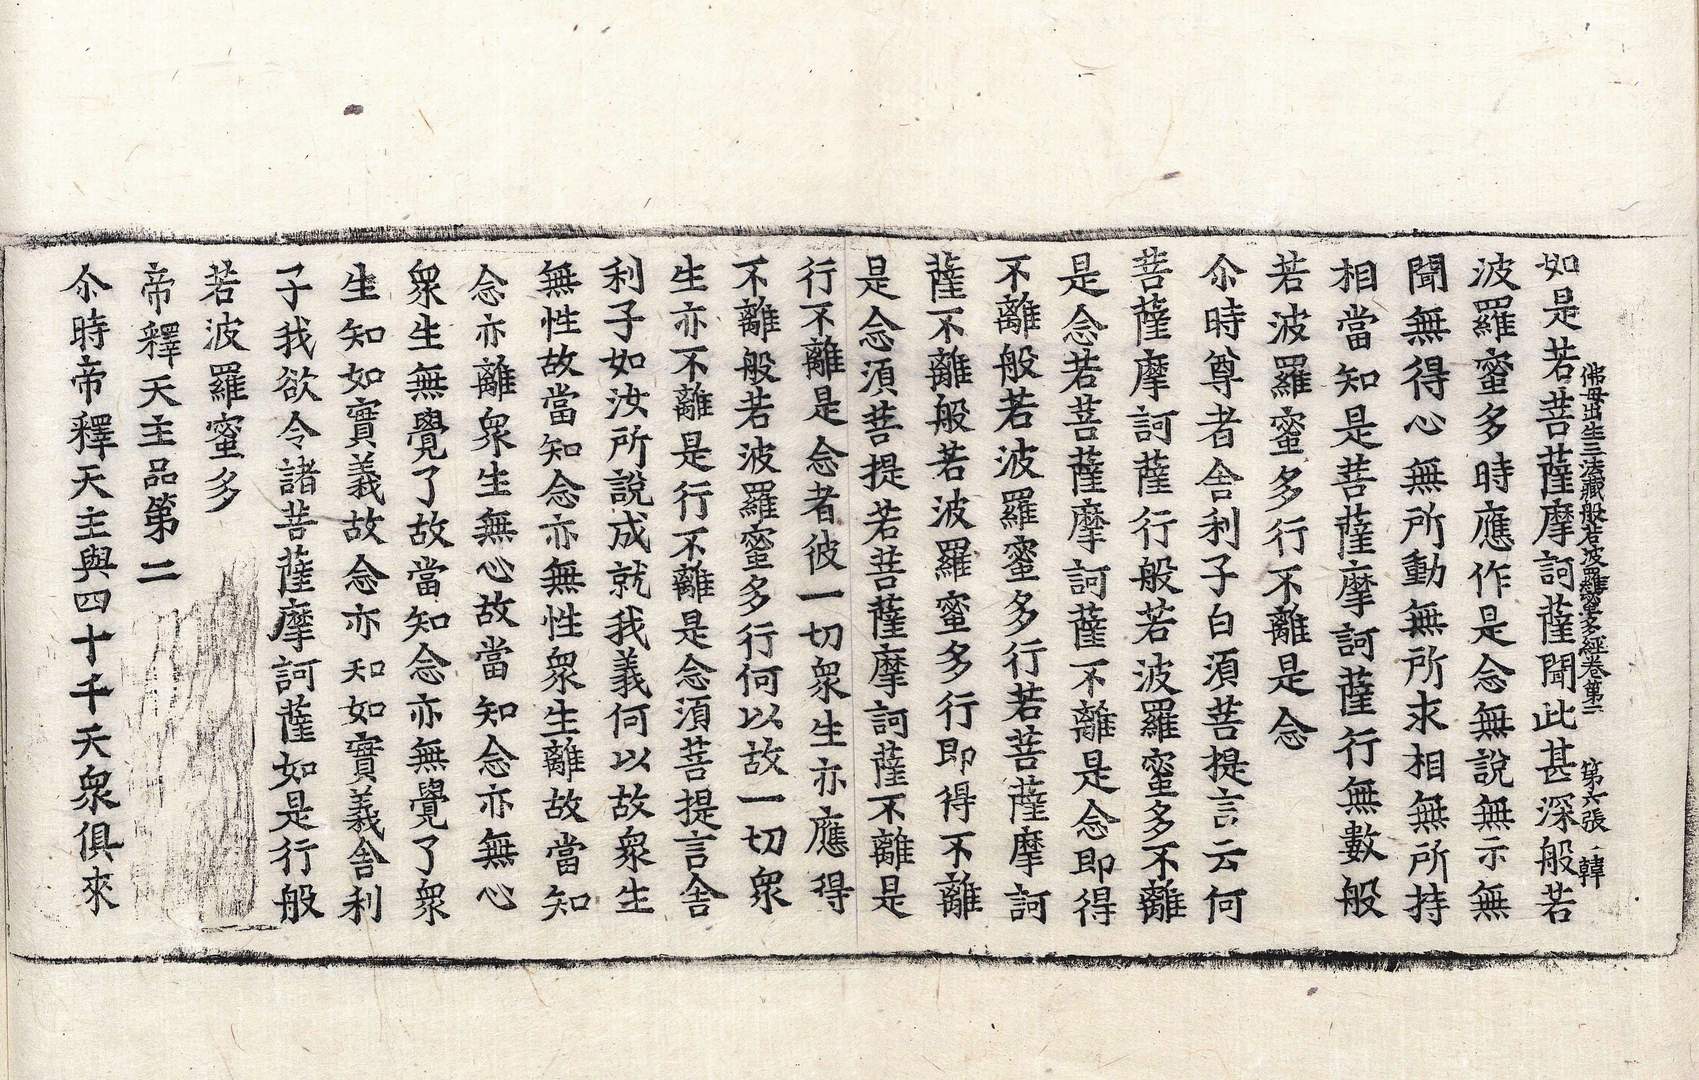 佛母出生三法藏般若波羅蜜多經卷第一 第六張 韓
如是若菩薩摩訶薩聞此甚深般若
波羅蜜多時應作是念無說無示無
聞無得心無所動無所求相無所持
相當知是菩薩摩訶薩行無數般
若波羅蜜多行不離是念
尒時尊者舍利子白須菩提言云何
菩薩摩訶薩行般若波羅蜜多不離
是念若菩薩摩訶薩不離是念即得
不離般若波羅蜜多行若菩薩摩訶
薩不離般若波羅蜜多行即得不離
是念須菩提若菩薩摩訶薩不離是
行不離是念者彼一切衆生亦應得
不離般若波羅蜜多行何以故一切衆
生亦不離是行不離是念須菩提言舍
利子如汝所說成就我義何以故衆生
無性故當知念亦無性衆生離故當知
念亦離衆生無心故當知念亦無心
衆生無覺了故當知念亦無覺了衆
生知如實義故念亦知如實義舍利
子我欲令諸菩薩摩訶薩如是行般
若波羅蜜多
帝釋天主品第二
尒時帝釋天主與四十千天衆俱來